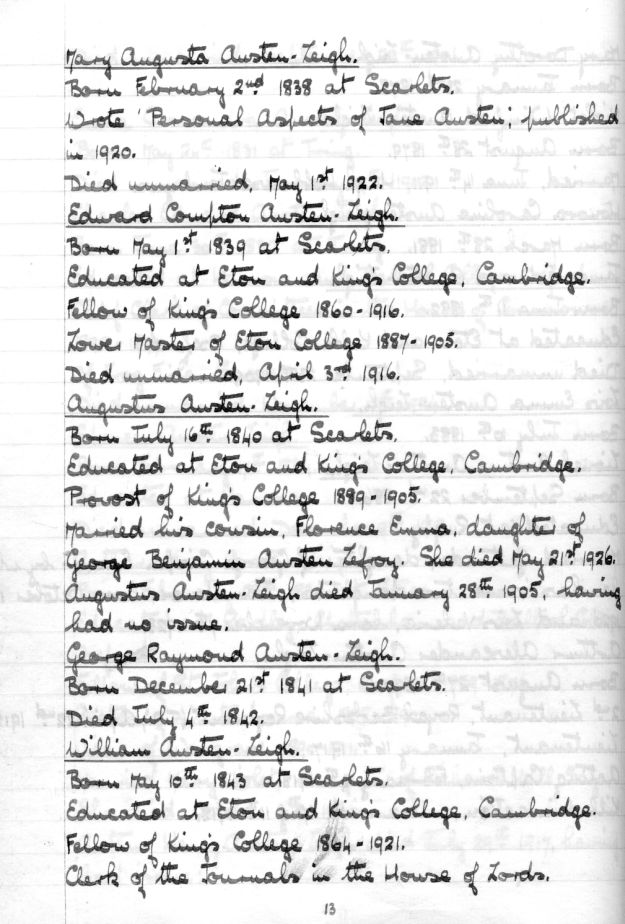 Mary Augusta Austen-Leigh.
Born February 2nd 1838 at Scarlets.
Wrote 'Personal Aspects of Jane Austen', published
in 1920.
Died unmarried, May 1st 1922.
Edward Compton Austen-Leigh.
Born May 1st 1839 at Scarlets.
Educated at Eton and King's College, Cambridge.
Fellow of King's College 1860-1916.
Lower Master of Eton College 1887-1905.
Died unmarried, April 3rd 1916.
Augustus Austen-Leigh.
Born July 16th 1840 at Scarlets.
Educated at Eton and King's College, Cambridge.
Provost of King's College 1889-1905.
Married his cousin, Florence Emma, daughter of
George Benjamin Austen Lefroy. She died May 21st 1926.
Augustus Austen-Leigh died January 28th 1905, having
had no issue.
George Raymond Austen-Leigh.
Born December 21st 1841 at Scarlets.
Died July 4th 1842.
William Austen-Leigh.
Born May 10th 1843 at Scarlets.
Educated at Eton and King's College, Cambridge.
Fellow of King's College 1864-1921.
Clerk of the Journals in the House of Lords.
13